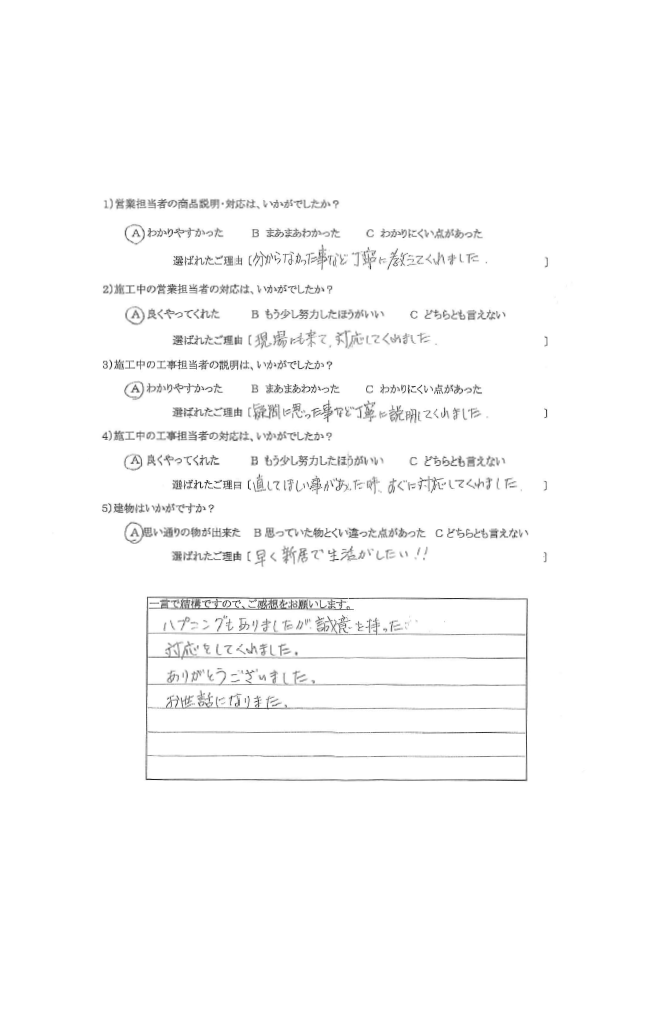 1)営業担当者の商品説明・対応は、いかがでしたか？
Ⓐ わかりやすかった B まあまあわかった C わかりにくい点があった
選ばれたご理由 [分からなかった事など丁寧に教えてくれました. ]
2)施工中の営業担当者の対応は、いかがでしたか？
Ⓐ 良くやってくれた B もう少し努力したほうがいい C どちらとも言えない
選ばれたご理由 [現場にも来て、対応してくれました. ]
3)施工中の工事担当者の説明は、いかがでしたか？
Ⓐ わかりやすかった B まあまあわかった C わかりにくい点があった
選ばれたご理由 [疑問に思った事など丁寧に説明してくれました. ]
4)施工中の工事担当者の対応は、いかがでしたか？
Ⓐ 良くやってくれた B もう少し努力したほうがいい C どちらとも言えない
選ばれたご理日 [直してほしい事があった時、すぐに対応してくれました. ]
5)建物はいかがですか？
Ⓐ思い通りの物が出来た B 思っていた物とくい違った点があった C どちらとも言えない
選ばれたご理由 [早く新居で生活がしたい!! ]
一言で結構ですので、ご感想をお願いします。
ハプニングもありましたが、誠意を持った
対応をしてくれました。
ありがとうございました。
お世話になりました。